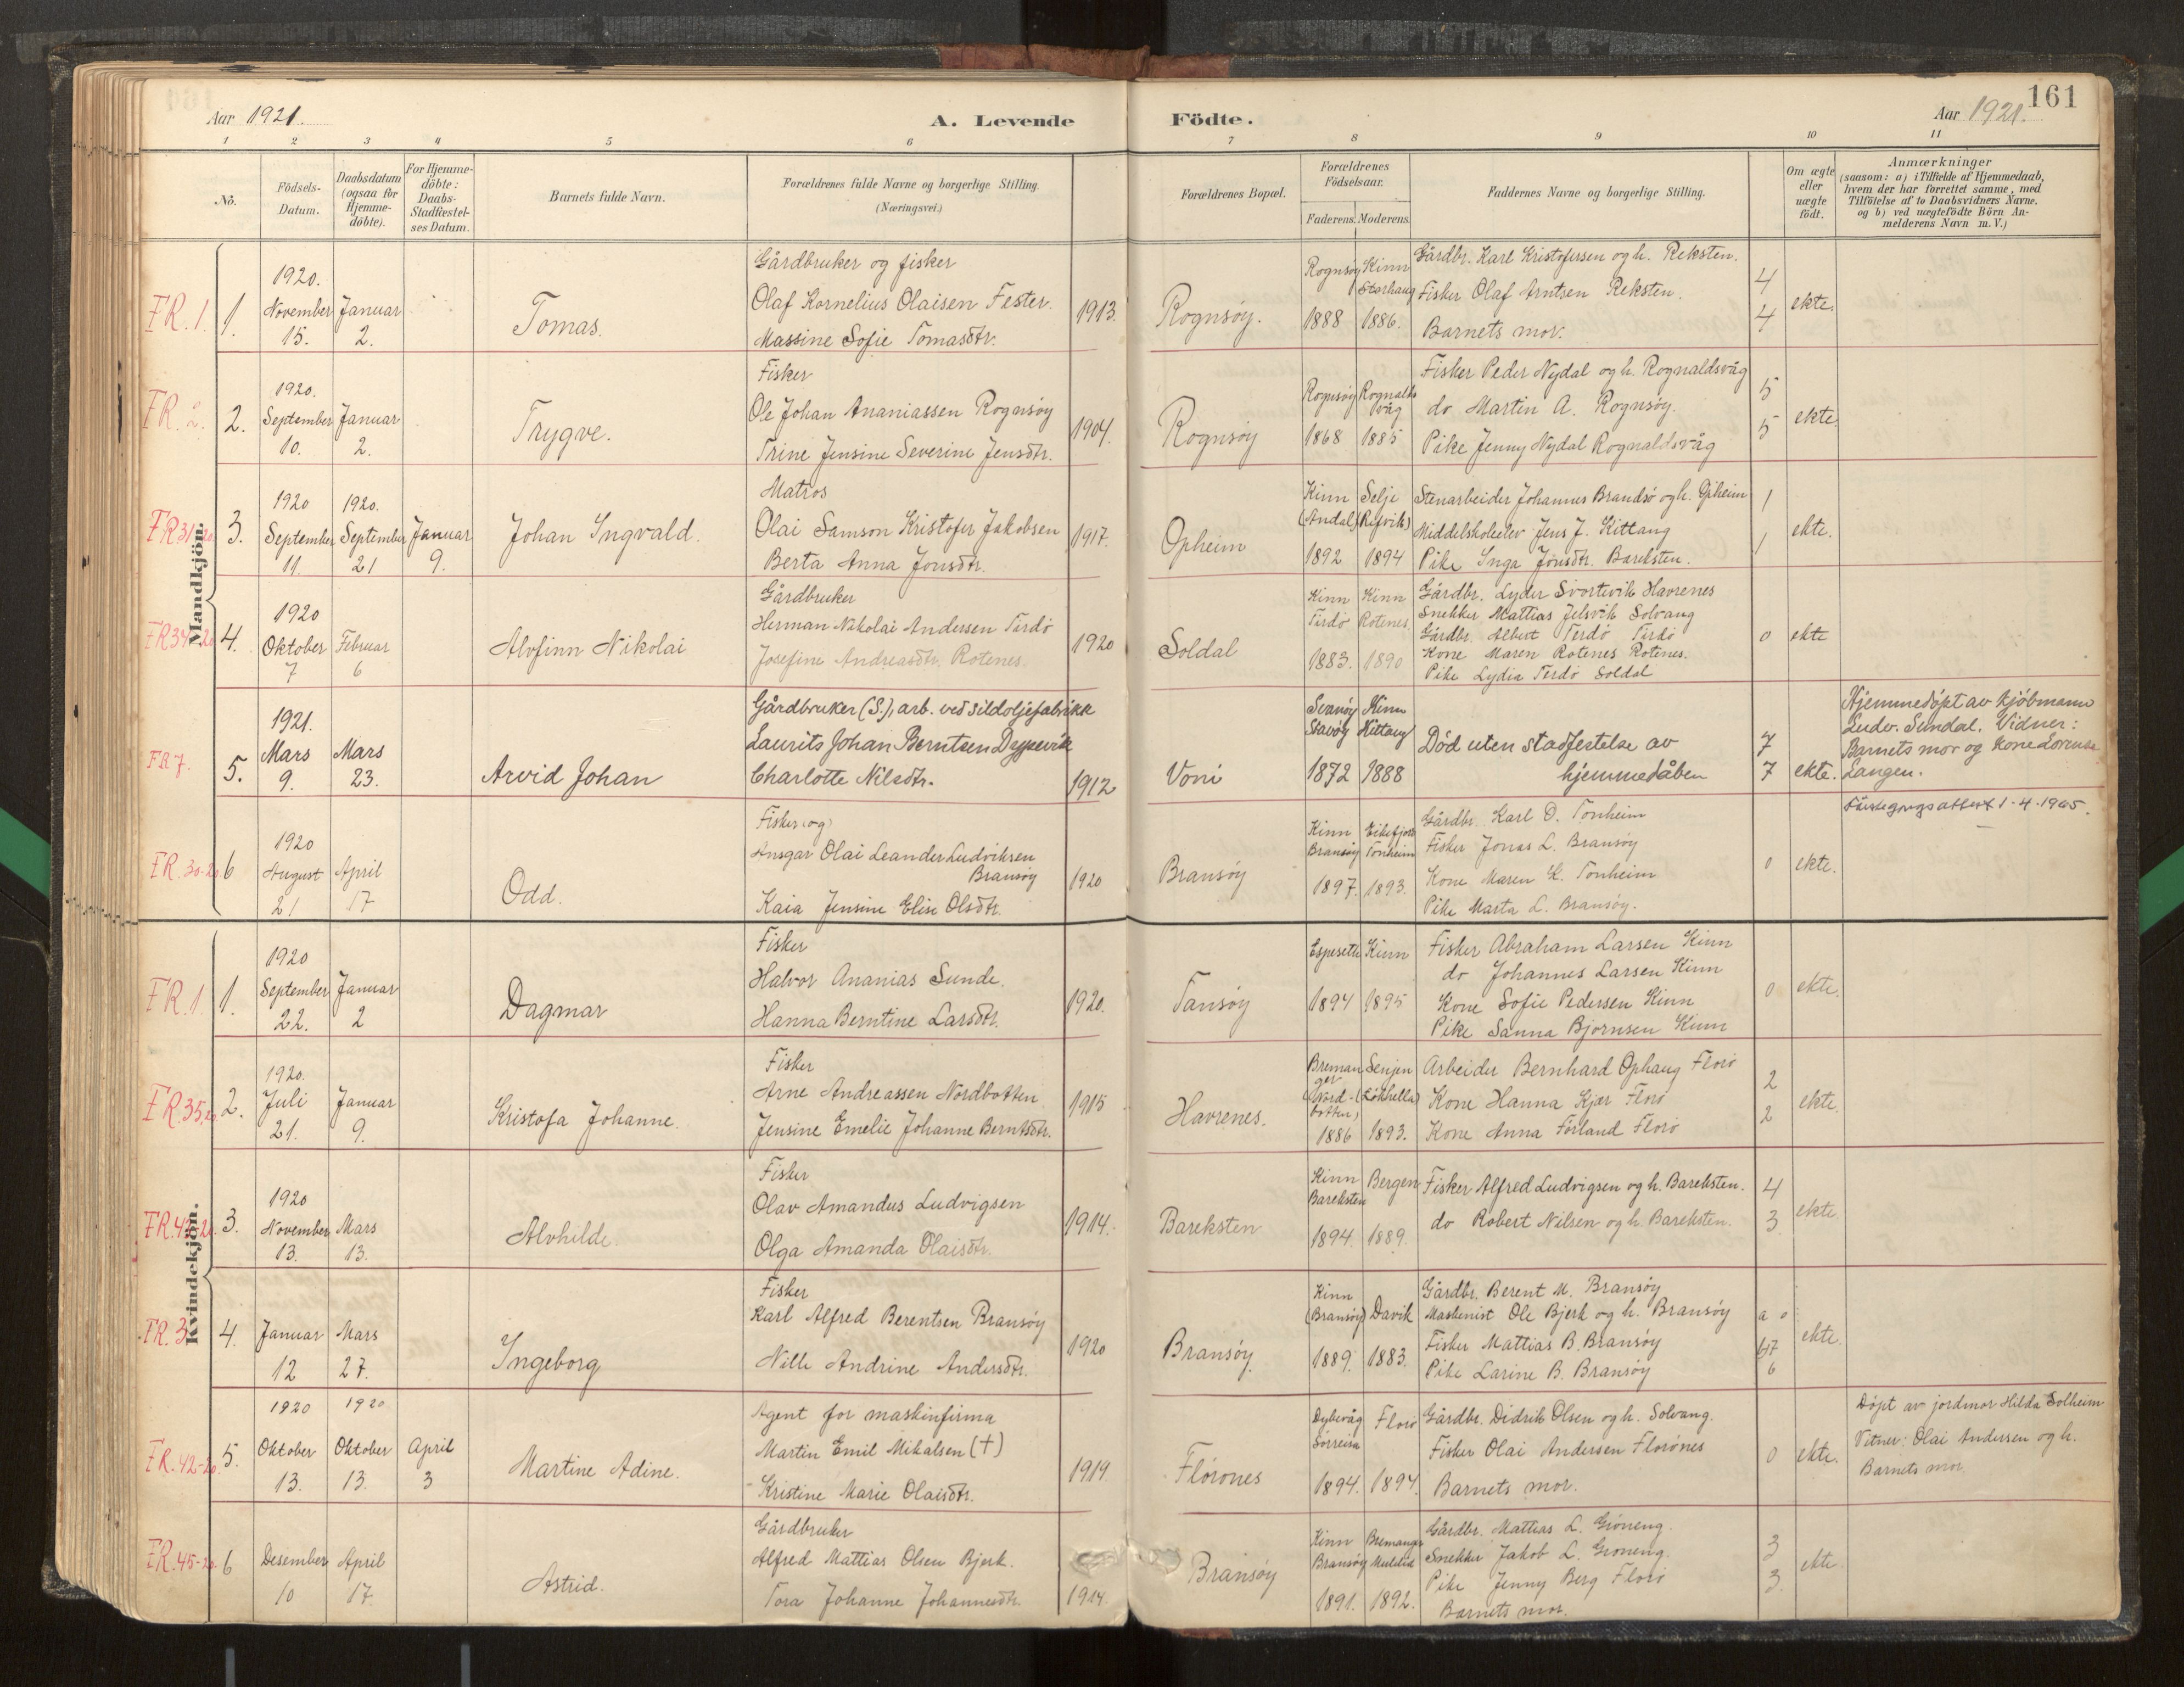 161
Aar 1921.
A. Levende Födte.
Aar 1921.
1 2 3 4 5 6 7 8 9 10 11
No.
Födsels-Datum.
Daabsdatum (ogsaa for Hjemme-döbte).
For Hjemme-döbte: Daabs-Stadfæstel-ses Datum.
Barnets fulde Navn.
Forældrenes fulde Navne og borgerlige Stilling.
(Næringsvei.)
Forældrenes Bopæl.
Forældrenes Födselsaar.
Faderens. Moderens.
Faddernes Navne og borgerlige Stilling.
Om ægte eller uægte födt.
Anmærkninger
(saasom: a) i Tilfælde af Hjemmedaab,
hvem der har forrettet samme, med
Tilföielse af to Daabsvidners Navne.
og b) ved uægtefödte Börn An-
melderens Navn m. V.)
Mandkjön.
FR. 1. 1.
1920. November 15.
Januar 2.
Tomas.
Gårdbruker og fisker
Olaf Kornelius Olaisen Fester.
Massine Sofie Tomasdtr.
1913.
Rognsöy.
Rognsöy 1888
Kinn Storhaug 1886.
Gårdbr. Karl Kristofersen og h. Reksten.
Fisker Olaf Arntsen Reksten.
Barnets mor.
4
4
ekte.
FR. 2. 2.
1920. September 10.
Januar 2.
Trygve.
Fisker
Ole Johan Ananiassen Rognsöy
Trine Jensine Severine Jensdtr.
1904.
Rognsöy
Rognsöy 1868
Rognalds våg 1885
Fisker Peder Nydal og h. Rognaldsvåg
do Martin A. Rognsöy.
Pike Jenny Nydal Rognaldsvåg
5
5
ekte.
FR 31-20 3.
1920 September 11.
1920. September 21
Januar 9.
Johan Ingvald.
Matros
Olai Samson Kristofer Jakobsen
Berta Anna Jonsdtr.
1917.
Opheim
Kinn (Andal) 1892
Selje (Refvik) 1894
Stenarbeider Johannes Brandsö og h. Opheim
Middelskoleelev Jens J. Kittang
Pike Inga Jonsdtr. Bareksten.
1
1
ekte.
FR 34-20 4.
1920 Oktober 7
Februar 6
Alvfinn Nikolai
Gårdbruker
Herman Nikolai Andersen Terdö
Josefine Andreasdtr. Rotenes.
1920
Soldal
Kinn Terdö 1883.
Kinn Rotenes. 1890
Gårdbr. Lyder Svortevik Havrenes
Snekker Mattias Jelsvik Solvang
Gårdbr. Albert Terdö Terdö
Kone Maren Rotenes Rotenes.
Pike Lydia Terdö Soldal
0
ekte
FR 7. 5.
1921. Mars 9.
Mars 23.
Arvid Johan
Gårdbruker (S.), arb. ved sildoljefabrikk
Laurits Johan Berntsen Dypevik
Charlotte Nilsdtr.
1912
Voni
Svanöy Stavöy 1872
Kinn Kittang 1888
Död uten stadfestelse av
hjemmedåben
7
7
ekte.
Hjemmedöpt av kjöbmann
Ludv. Sundal. Vidner:
Barnets mor og kone Lorense
Langen.
FR. 30-20 6
1920 August 21
April 17
Odd.
Fisker (og)
Ansgar Olai Leander Ludviksen
Bransöy
Kaia Jensine Elise Olsdtr.
1920
Bransöy
Kinn Bransöy 1897.
Eikefjord Tonheim 1893.
Gårdbr. Karl D. Tonheim
Fisker Jonas L. Bransöy
Kone Maren K. Tonheim
Pike Marta L. Bransöy.
0
ekte.
1-4-1965.
Kvindekjön.
FR. 1 1.
1920 September 22.
Januar 2
Dagmar
Fisker
Halvor Ananias Sunde.
Hanna Berntine Larsdtr.
1920.
Tansöy
Espeseth 1894
Kinn 1895
Fisker Abraham Larsen Kinn
do Johannes Larsen Kinn
Kone Sofie Pedersen Kinn
Pike Sanna Bjornsen Kinn
0
ekte.
FR. 35,20 2.
1920. Juli 21.
Januar 9.
Kristofa Johanne.
Fisker
Arne Andreassen Nordbotten
Jensine Emelie Johanne Berntsdtr.
1915
Havrenes.
Bremanger (Nord-botten) 1886
Senjen (Lökhella) 1893.
Arbeider Bernhard Ophaug Florö
Kone Hanna Kjær Florö
Kone Anna Förland Florö
2
2
ekte.
FR. 42-20. 3.
1920 November 13.
Mars 13.
Alvhilde.
Fisker
Olav Amandus Ludvigsen
Olga Amanda Olaisdtr.
1914.
Bareksten
Kinn Bareksten 1894.
Bergen 1889.
Fisker Alfred Ludvigsen og h. Bareksten.
do Robert Nilsen og h. Bareksten.
4
3
ekte
FR. 3 4.
Januar 12
Mars 27.
Ingeborg
Fisker
Karl Alfred Berentsen Bransöy
Nille Andrine Andersdtr.
1920
Bransöy.
Kinn (Bransöy) 1889.
Davik 1883.
Gårdbr. Berent M. Bransöy
Maskinist Ole Bjerk og h. Bransöy
Fisker Mattias B. Bransöy
Pike Larine B. Bransöy
a 0
6
ekte.
FR. 42-20. 5.
1920 Oktober 13.
1920 Oktober 13.
April 3
Martine Adine.
Agent for maskinfirma
Martin Emil Mikalsen (†)
Kristine Marie Olaisdtr.
1919.
Florönes
Dybvåg Sörreisa 1894.
Florö 1894.
Gårdbr. Didrik Olsen og h. Solvang.
Fisker Olai Andersen Florönes
Barnets mor.
0
ekte.
Döpt av jordmor Hilda Solheim
Vitner: Olai Andersen og h.
Barnets mor
FR. 45-20. 6
Desember 10
April 17.
Astrid.
Gårdbruker
Alfred Mattias Olsen Bjerk.
Tora Johanne Johannesdtr.
1914.
Bransöy
Kinn Bransöy 1891.
Bremanger 1892.
Gårdbr. Mattias L. Gröneng.
Snekker Jakob L. Gröneng.
Pike Jenny Berg Florö
Barnets mor.
3
3.
ekte